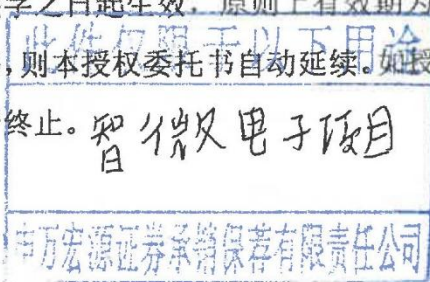 字之日起生效,原则上有效期为
此件仅限于以下用途
,则本授权委托书自动延续。如授
终止。
智微电子项目
申万宏源证券承销保荐有限责任公司